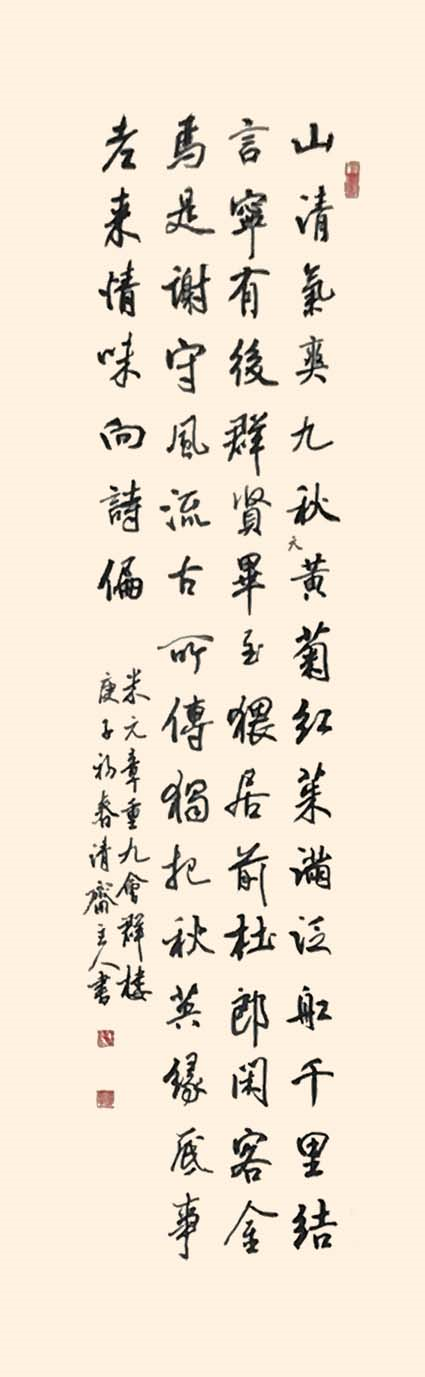 山清氣爽九秋天黄菊红茱满泛船千里结
言寧有後群賢畢至猥居前杜郎闲客金
焉是謝守風流古所傳獨把秋英缘底事
老来情味向詩偏
米元章重九會群樓
庚子初春清齋主人書